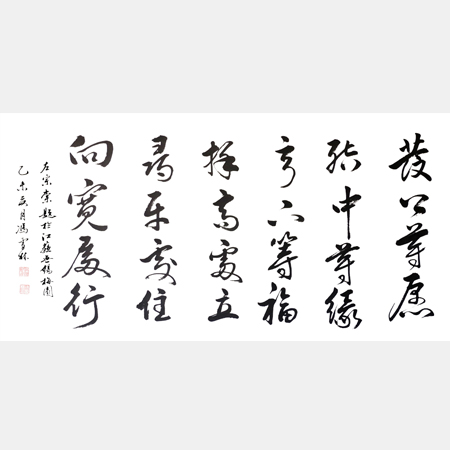 發上等愿
結中等緣
享下等福
擇高處立
尋平處住
向寬處行
左宗棠題於江蘇無錫梅園
乙未 月馮雪林